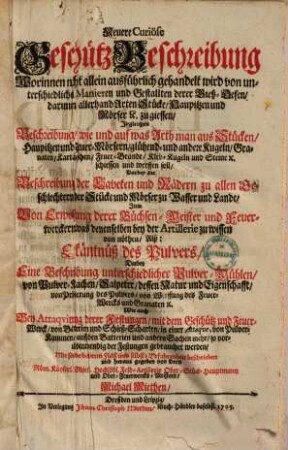 Neuere Curiöse
Geschütz Beschreibung
Worinnen nicht allein ausführlich gehandelt wird von un-
terschiedliche Manieren und Gestalten derer Gieß-Oefen,
darinnen allerhand Arten Stücke, Haupitzen und
Mörser &c. zu giessen,
Ingleichen
Beschreibung wie und auf was Arth man aus Stücken,
Haupitzen und Feuer-Mörsern, glühend- und andere Kugeln, Gra-
naten, Kartätschen, Feuer-Brände, Kleb-Kugeln und Steine &c.
schiessen und werffen soll,
Beschreibung der Laveten und Rädern zu allen Ge-
schlechten der Stücke und Mörser zu Wasser und Lande,
Item
Von Erweisung derer Büchsen-Meister und Feuer-
von nöthen, Als:
Erkäntnüß des Pulvers,
Dabey
Eine Beschreibung unterschiedlicher Pulver-Mühlen,
von Pulver-Sachen, Salpeter, dessen Natur und Eigenschafft,
von Probirung des Pulvers, von Werffung des Feuer-
Wercks und Granaten &c.
Wie auch
Bey Attaqvirung derer Festungen, mit dem Geschütz und Feuer-
Werck, von Batterien und Schieß-Scharten, in einer Attaque, von Pulver-
Kammern, auf den Batterien und andern Sachen mehr, so vor-
und heraus gegeben von
Ober-Stück-Hauptmann
und Ober-Feuerwercks-Meistern,
Michael Miethen,
Dresden und Leipzig,
In Verlegung Johann Christoph Miethen, Buch-Händler daselbst. 1705.